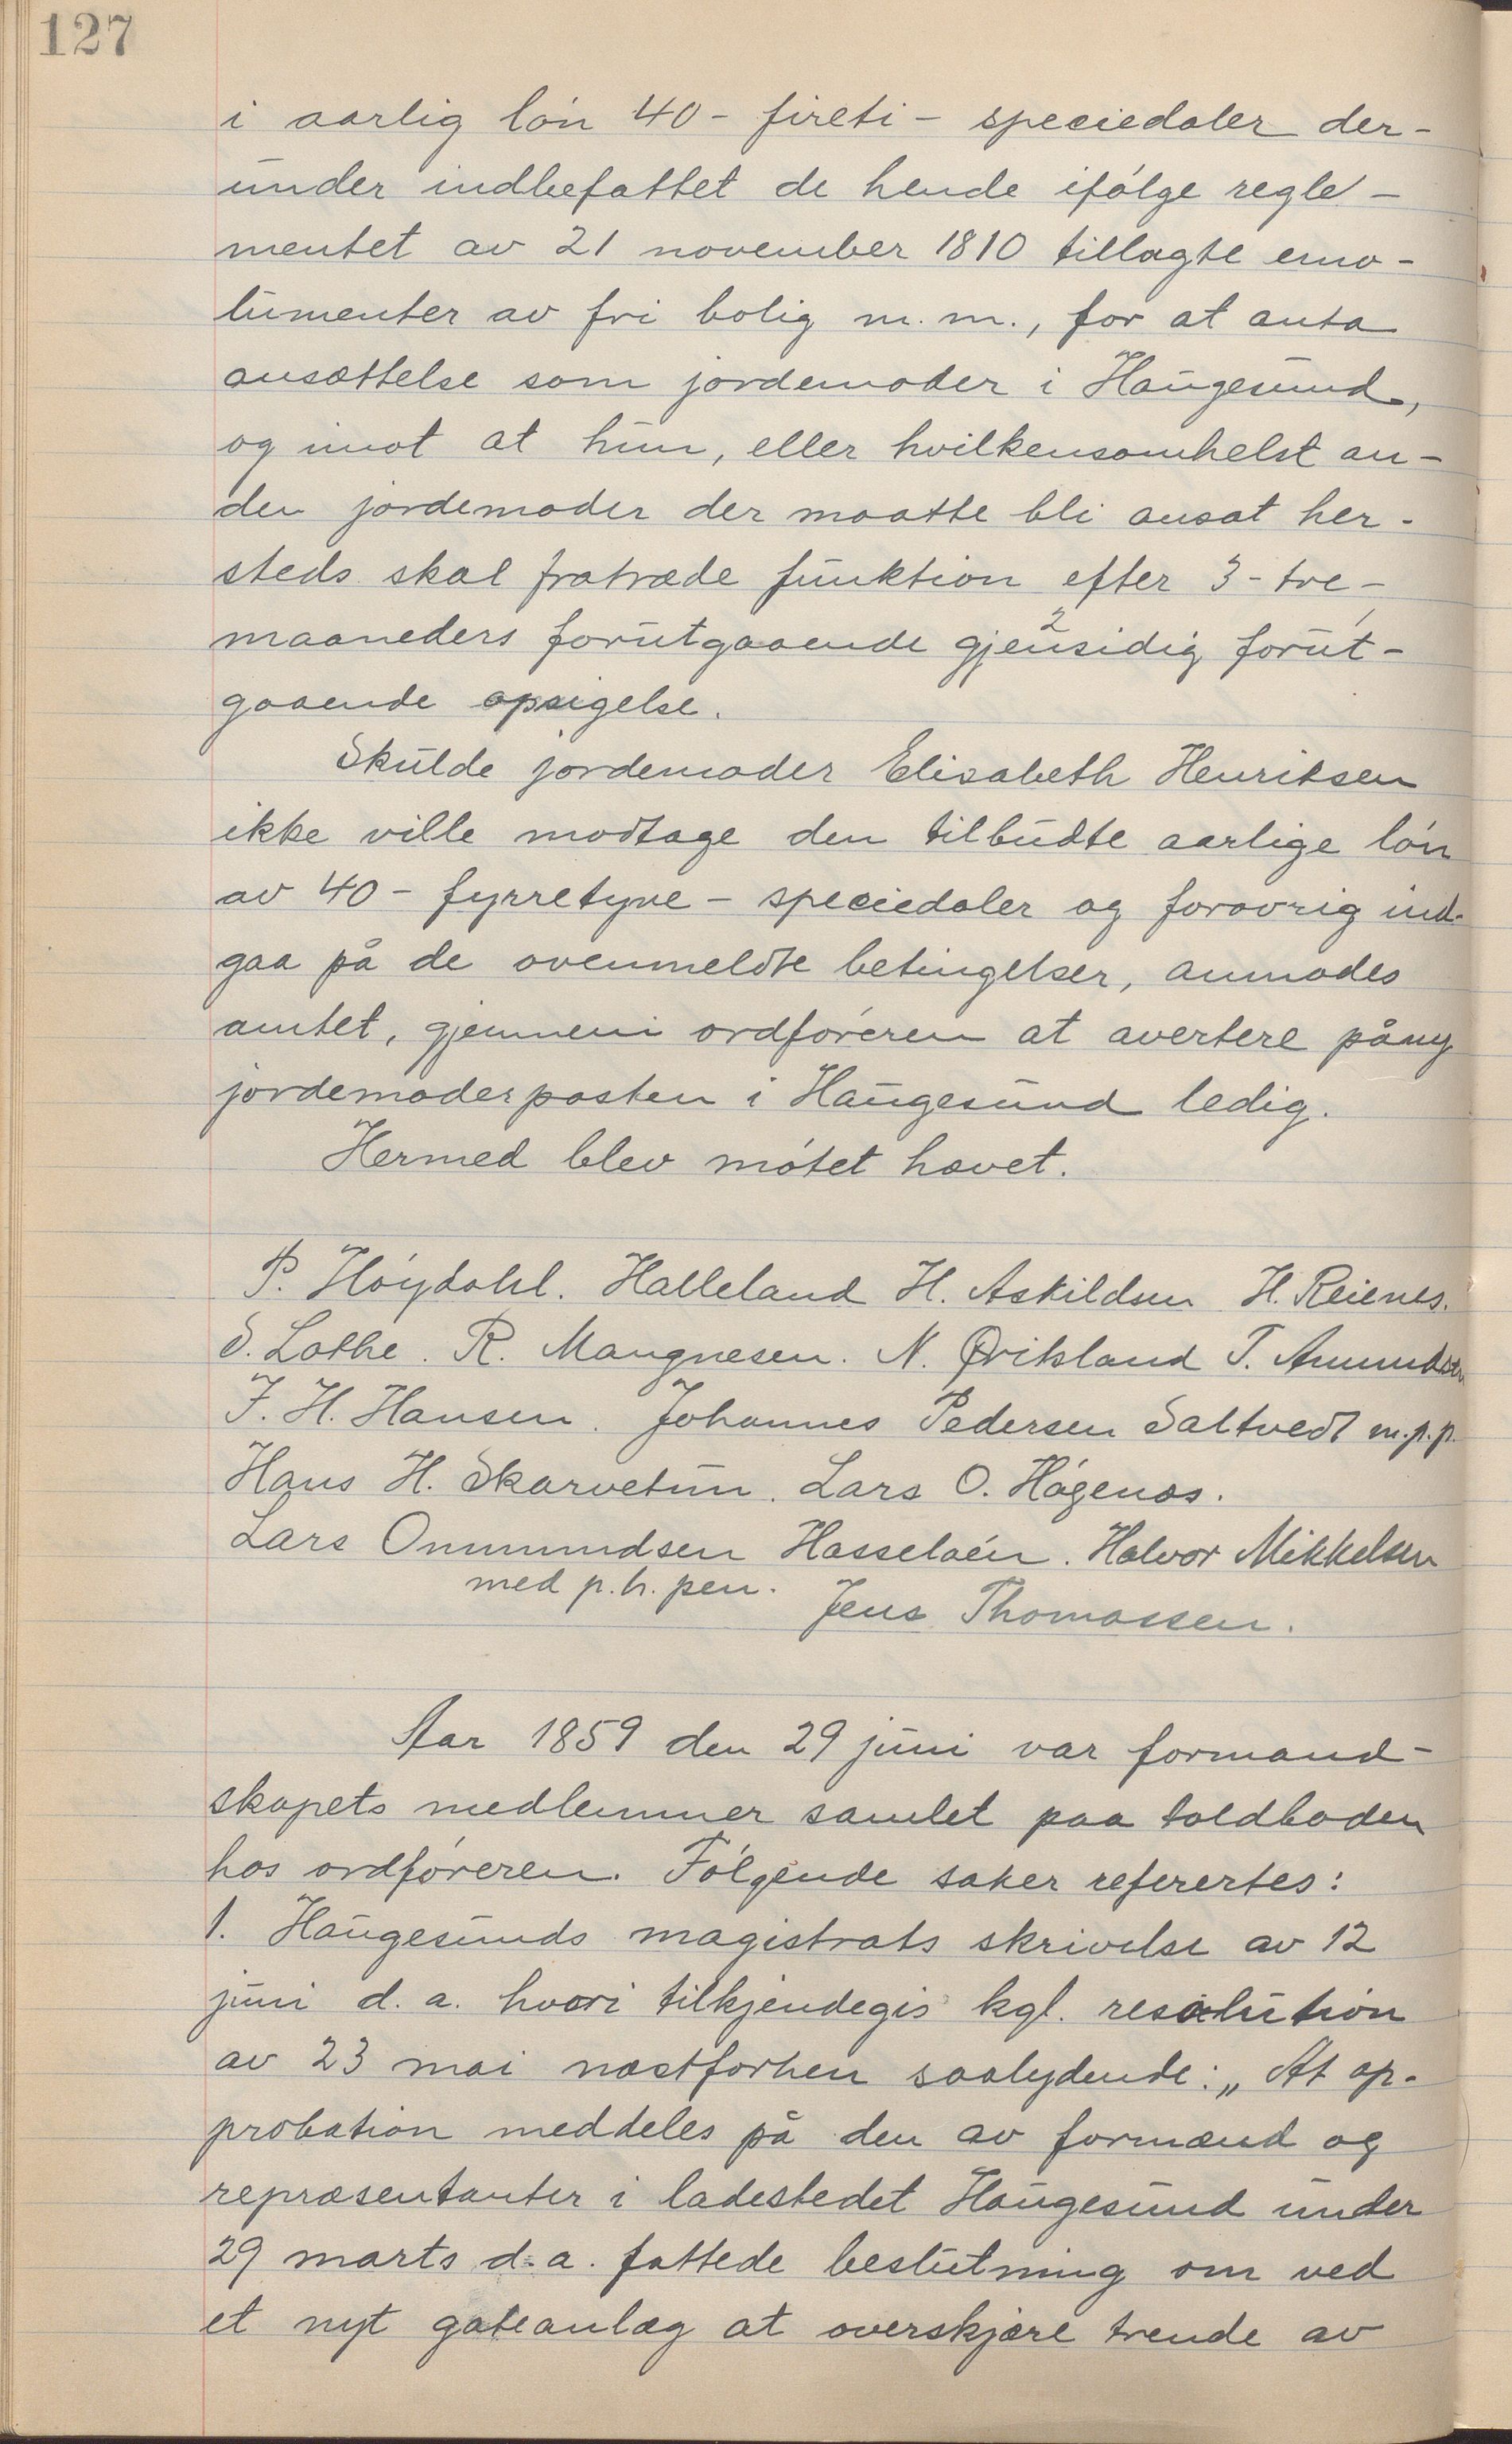 127
i aarlig løn 40 - fireti - speciedaler der-
under indbefattet de hende ifølge regle-
mentet av 21 november 1810 tillagte emo-
lumenter av fri bolig m.m., for at anta
ansættelse som jordemoder i Haugesund,
og imot at hun, eller hvilkensomhelst an-
den jordemoder der maatte bli ansat her-
steds skal fratræde funktion efter 3 - tre -
maaneders forutgaaende gjensidig forut-
gaaende opsigelse.
Skulde jordemoder Elisabeth Henriksen
ikke ville modtage den tilbudte aarlige løn
av 40 - fyrretyve - speciedaler og forøvrig ind-
gaa på de ovenmeldte betingelser, anmodes
amtet, gjennem ordføreren at avertere påny
jordemoderposten i Haugesund ledig.
Hermed blev møtet hævet.
P. Høydahl. Halleland H. Askildsen H. Reienes.
S. Lothe. R. Mangnesen. N. Ørikland T. Amundsen
J. H. Hansen. Johannes Pedersen Saltvedt m.p.p.
Hans H. Skarvetun. Lars O. Høgenæs.
Lars Ommundsen Hasseløen. Halvor Mikkelsen
med p.h. pen. Jens Thomassen.
Aar 1859 den 29 juni var formand-
skapets medlemmer samlet paa toldboden
hos ordføreren. Følgende saker referertes:
1. Haugesunds magistrats skrivelse av 12
juni d.a. hvori tilkjendegis kgl. resolution
av 23 mai næstforhen saalydende: „At ap-
probation meddeles på den av formænd og
repræsentanter i ladestedet Haugesund under
29 marts d.a. fattede beslutning om ved
et nyt gateanlæg at overskjære trende av